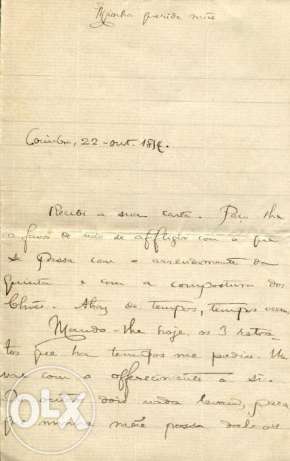 Minha querida mãe
Coimbra, 22-out. 18
Recebi a sua carta. Peço-lhe
o favor de não se affligir com o que
se passa com o arrendamento da
quinta e com a compostura dos
Atraz de tempos, tempos veem.
Mando-lhe hoje os 3 retra-
tos que ha tempos me pedia. Um
vae com o offerecimento a si.
Os outros dois nada levam, para
que minha mãe possa dal-os
OLX